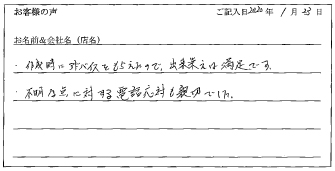 お客様の声 ご記入日2020年 1月23日
お名前&会社名（店名）
・作成時にアドバイスをもらえたので、出来栄えは満足です。
・不明な点に対する電話応対も親切でした。